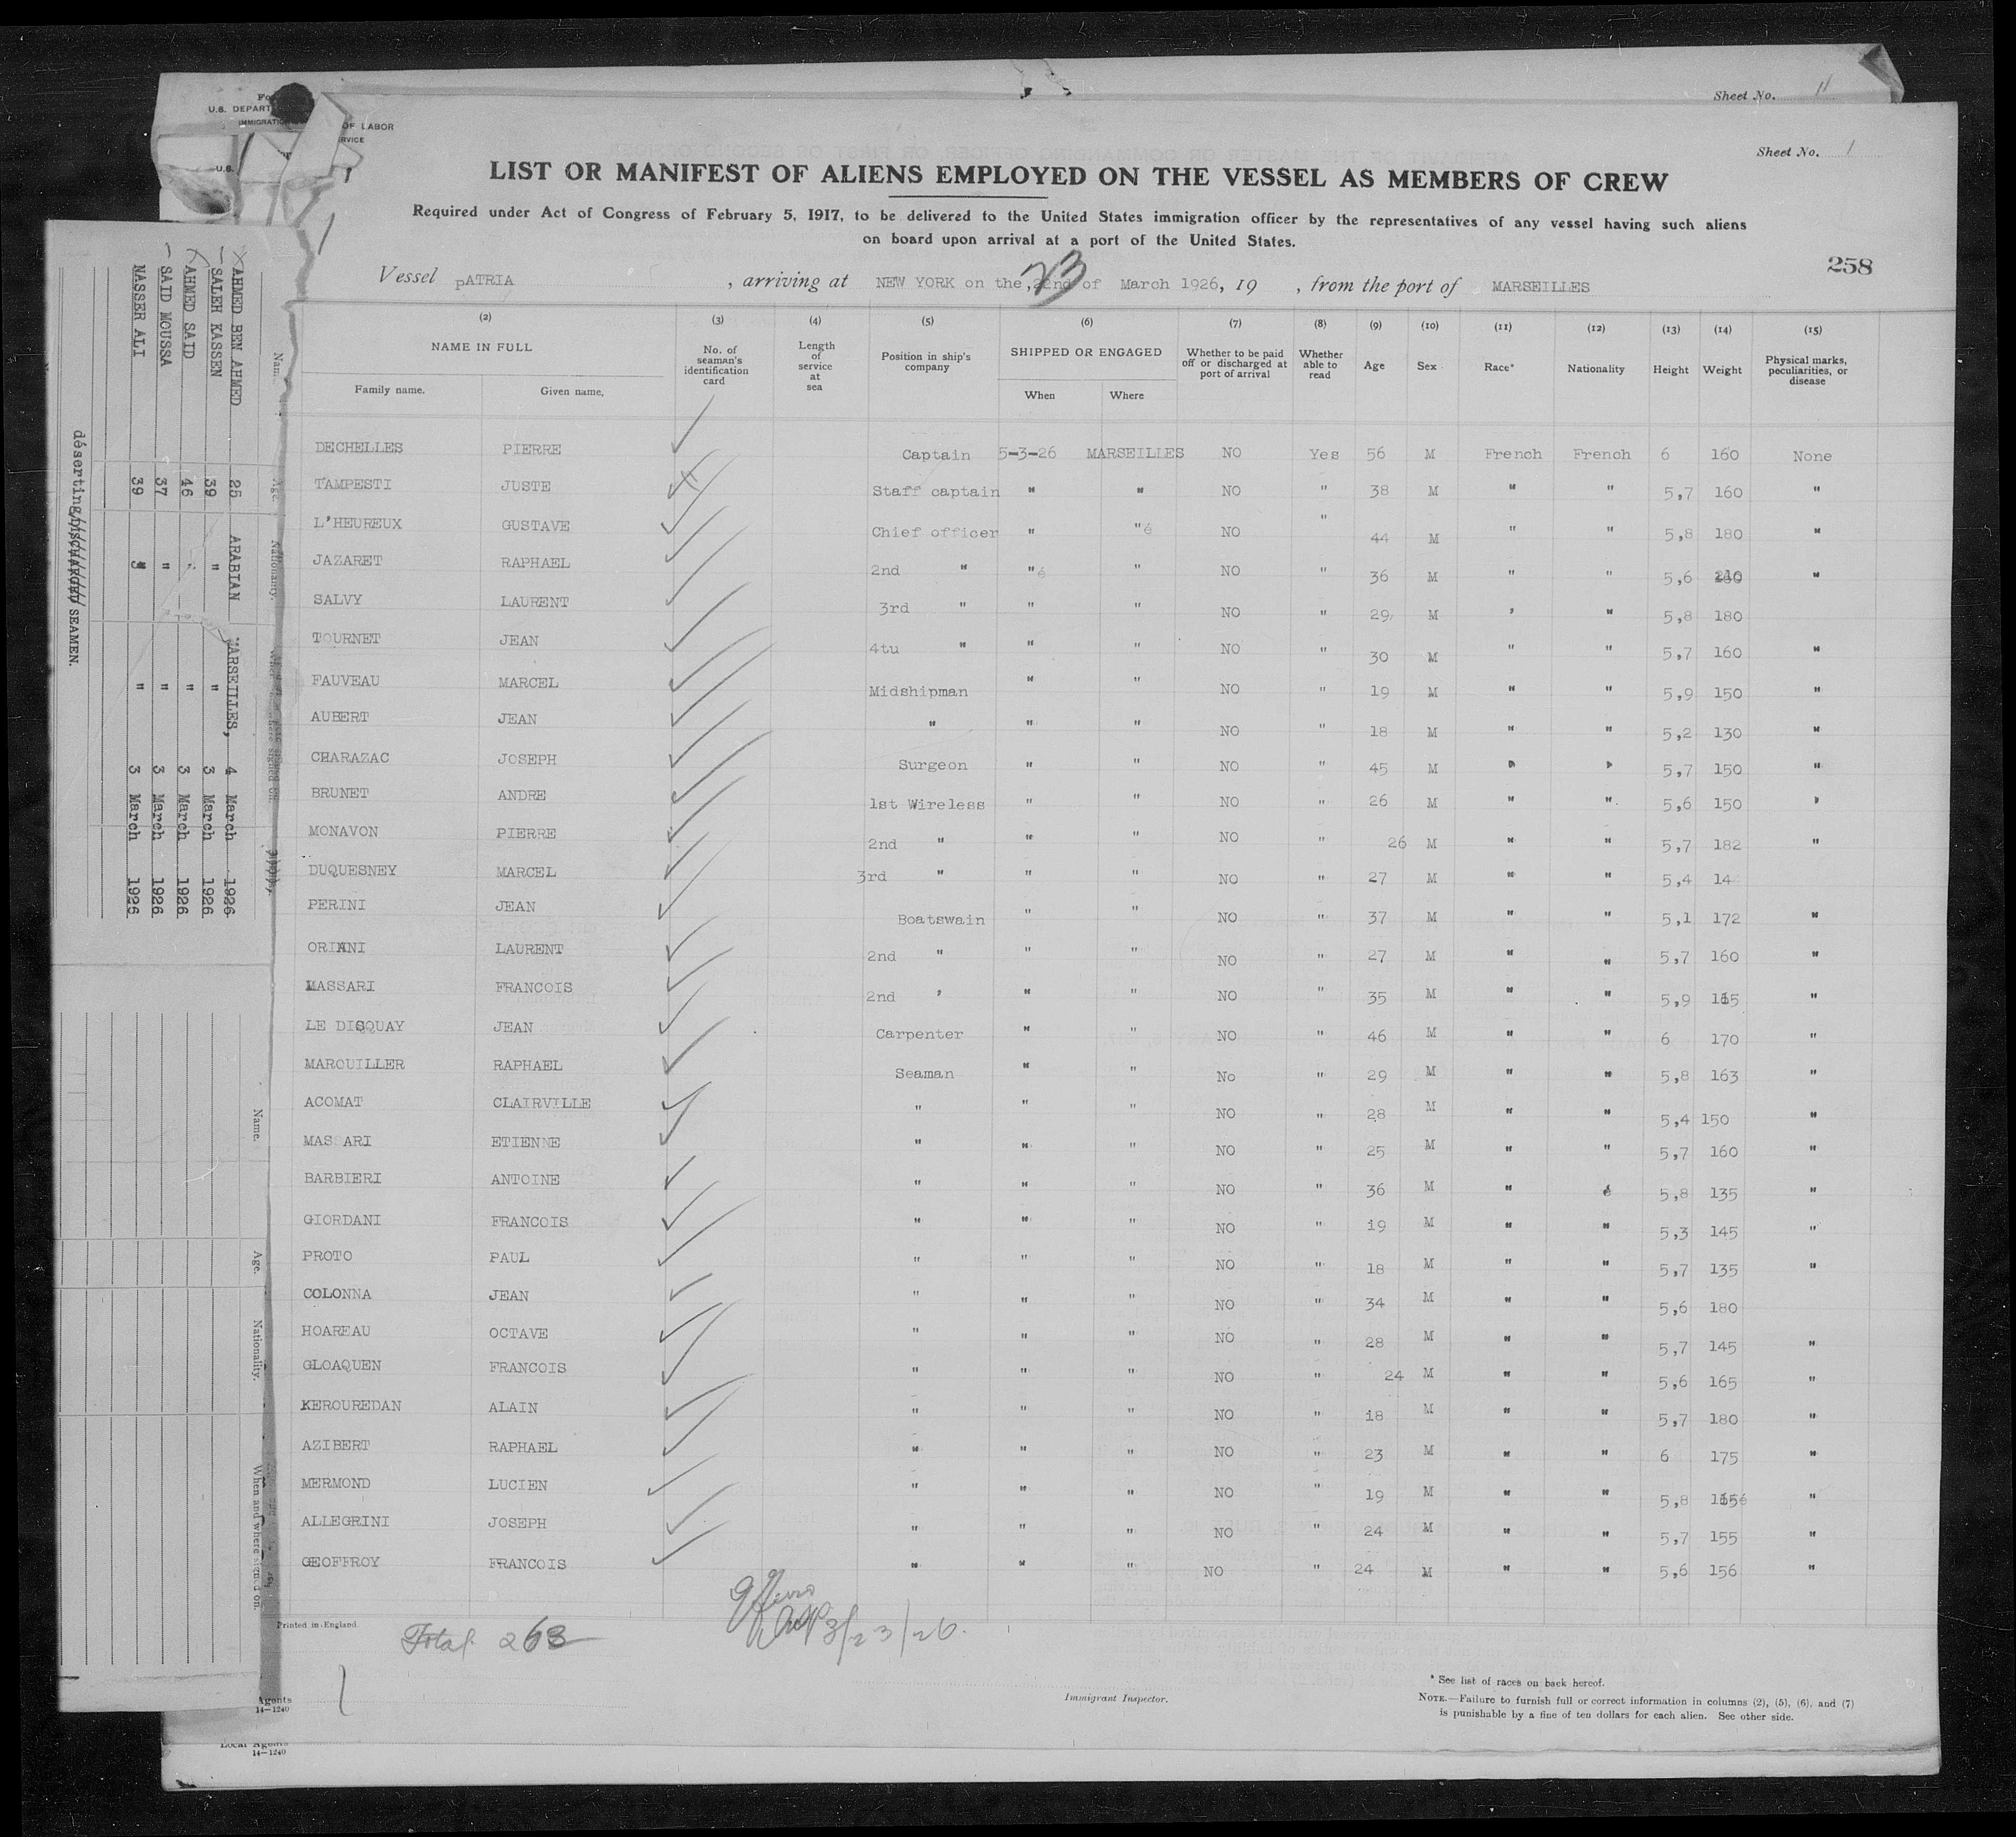 Sheet No. 11
U.S. DEPART
IMMIGRATIO
OF LABOR
RVICE
U.S.
Sheet No. 1
LIST OR MANIFEST OF ALIENS EMPLOYED ON THE VESSEL AS MEMBERS OF CREW
Required under Act of Congress of February 5, 1917, to be delivered to the United States immigration officer by the representatives of any vessel having such aliens
on board upon arrival at a port of the United States.
258
Vessel pATRIA , arriving at NEW YORK on the, 22nd 23 of March 1926, 19 , from the port of MARSEILLES
(2) (3) (4) (5) (6) (7) (8) (9) (10) (11) (12) (13) (14) (15)
NAME IN FULL No. of seaman's identification card Length of service at sea Position in ship's company SHIPPED OR ENGAGED Whether to be paid off or discharged at port of arrival Whether able to read Age Sex Race* Nationality Height Weight Physical marks, peculiarities, or disease
Family name. Given name. When Where
DECHELLES PIERRE Captain 5-3-26 MARSEILLES NO Yes 56 M French French 6 160 None
TAMPESTI JUSTE Staff captain " " NO " 38 M " " 5,7 160 "
L'HEUREUX GUSTAVE Chief officer " "é NO " 44 M " " 5,8 180 "
JAZARET RAPHAEL 2nd " "é " NO " 36 M " " 5,6 "
SALVY LAURENT 3rd " " " NO " 29 M ' " 5,8 180
TOURNET JEAN 4tu " " " NO " 30 M " " 5,7 160 "
FAUVEAU MARCEL Midshipman " " NO " 19 M " " 5,9 150 "
AUBERT JEAN " " " NO " 18 M " " 5,2 130 "
CHARAZAC JOSEPH Surgeon " " NO " 45 M " " 5,7 150 "
BRUNET ANDRE 1st Wireless " " NO " 26 M " " 5,6 150 '
MONAVON PIERRE 2nd " " " NO " 26 M " " 5,7 182 "
DUQUESNEY MARCEL 3rd " " " NO " 27 M " " 5,4 14
PERINI JEAN Boatswain " " NO " 37 M " " 5,1 172 "
ORIANI LAURENT 2nd " " " NO " 27 M " " 5,7 160 "
MASSARI FRANCOIS 2nd ' " " NO " 35 M " " 5,9 "
LE DISQUAY JEAN Carpenter " " NO " 46 M " " 6 170 "
MAROUILLER RAPHAEL Seaman " " No " 29 M " " 5,8 163 "
ACOMAT CLAIRVILLE " " " NO " 28 M " " 5,4 150 "
MASSARI ETIENNE " " " NO " 25 M " " 5,7 160 "
BARBIERI ANTOINE " " " NO " 36 M " é 5,8 135 "
GIORDANI FRANCOIS " " " NO " 19 M " " 5,3 145 "
PROTO PAUL " " " NO " 18 M " " 5,7 135 "
COLONNA JEAN " " " NO " 34 M " " 5,6 180
HOAREAU OCTAVE " " " NO " 28 M " " 5,7 145 "
GLOAQUEN FRANCOIS " " " NO " 24 M " " 5,6 165 "
KEROUREDAN ALAIN " " " NO " 18 M " " 5,7 180 "
AZIBERT RAPHAEL " " " NO " 23 M " " 6 175 "
MERMOND LUCIEN " " " NO " 19 M " " 5,8 "
ALLEGRINI JOSEPH " " " NO " 24 M " " 5,7 155 "
GEOFFROY FRANCOIS " " " NO " 24 M " " 5,6 156 "
Printed in England
Total 263
3/23/26.
Immigrant Inspector.
* See list of races on back hereof.
NOTE.—Failure to furnish full or correct information in columns (2), (5), (6), and (7)
is punishable by a fine of ten dollars for each alien. See other side.
Agents
14—1240
Local Agents
14—1240
Name. Age. Nationality.
AHMED BEN AHMED 25 ARABIAN MARSEILLES, 4 March 1926
SALEH KASSEN 39 " " 3 March 1926
AHMED SAID 46 " " 3 March 1926
SAID MOUSSA 37 " " 3 March 1926
NASSER ALI 39 " " 3 March 1926
déserting DISCHARGED SEAMEN.
Name. Age. Nationality. When and where signed on.